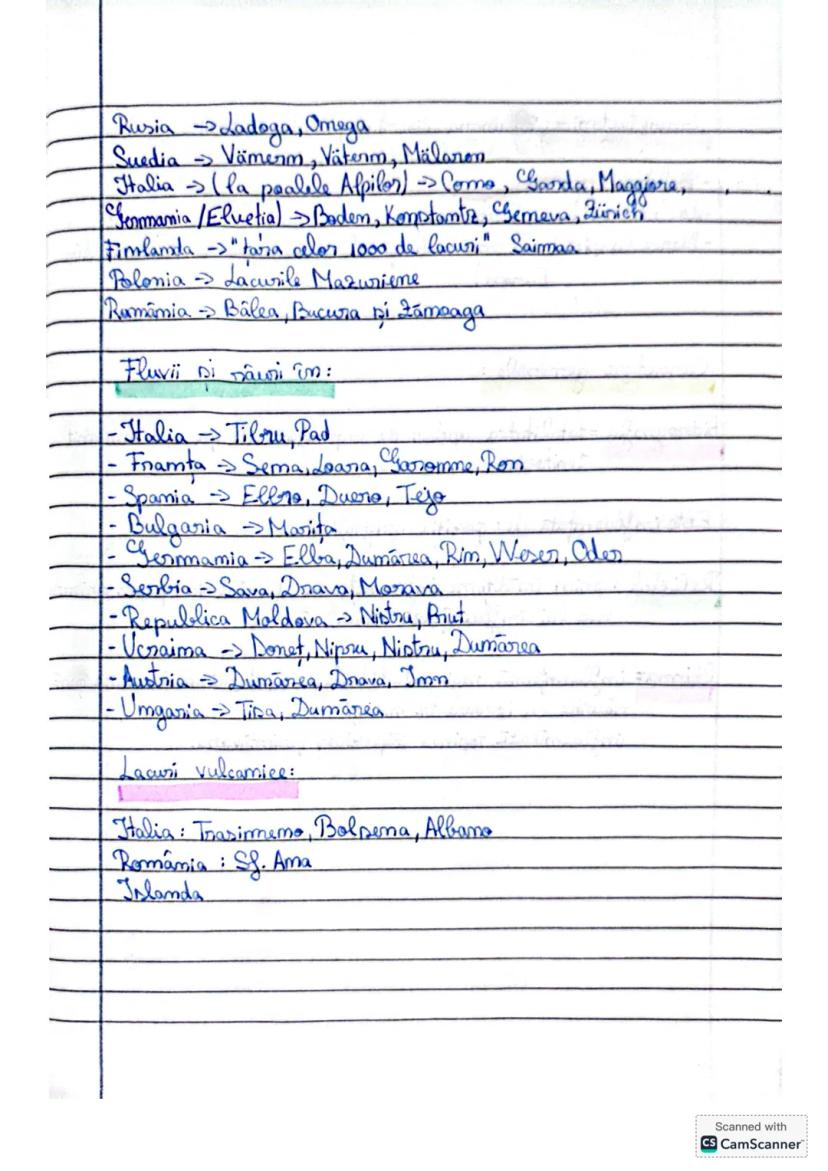 Rusia -> Ladoga, Omega
Suedia -> Vänern, Vätern, Mälaren
Italia -> (la poalele Alpilor) -> Como, Garda, Maggiore,
Germania /Elveția) -> Boden, Konstantz, Geneva, Zürich
Finlanda -> "țara celor 1000 de lacuri" Saimaa
Polonia -> Lacurile Mazuriene
România -> Bâlea, Bucura și Zănoaga
Fluvii și râuri în:
- Italia -> Tibru, Pad
- Franța -> Sena, Loara, Garonne, Ron
- Spania -> Elbro, Duero, Tejo
- Bulgaria -> Marița
- Germania -> Elba, Dunărea, Rin, Weser, Oder
- Serbia -> Sava, Drava, Morava
- Republica Moldova -> Nistru, Prut
- Ucraina -> Doneț, Nipru, Nistru, Dunărea
- Austria -> Dunărea, Drava, Inn
- Ungaria -> Tisa, Dunărea
Lacuri vulcanice:
Italia : Trasimeno, Bolsena, Albano
România : Sf. Ana
Islanda
Scanned with
CS CamScanner